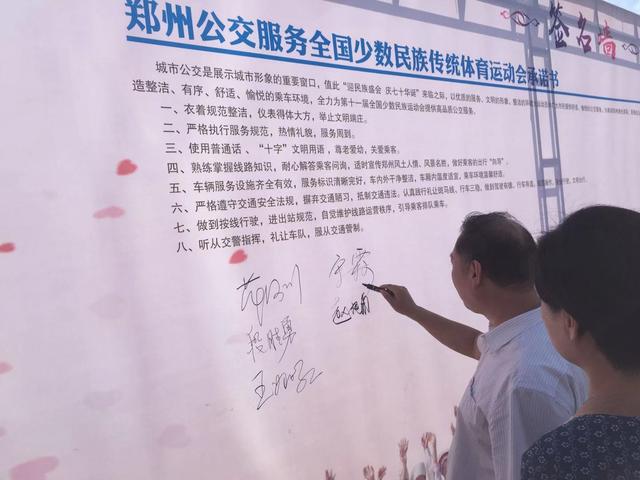 签名墙
郑州公交服务全国少数民族传统体育运动会承诺书
城市公交是展示城市形象的重要窗口，值此“迎民族盛会 庆七十华诞”来临之际，以优质的服务、文明的形象、整洁的
造整洁、有序、舒适、愉悦的乘车环境，全力为第十一届全国少数民族运动会提供高品质公交服务。
一、衣着规范整洁，仪表得体大方，举止文明端庄。
二、严格执行服务规范，热情礼貌，服务周到。
三、使用普通话、“十字”文明用语，尊老爱幼，关爱乘客。
四、熟练掌握线路知识，耐心解答乘客问询，适时宣导郑州风土人情、风景名胜，做好乘客的出行“向导”。
五、车辆服务设施齐全有效，服务标识清晰完好，车内外干净整洁，车厢内温度适宜，乘车环境温馨舒适。
六、严格遵守交通安全法规，摒弃交通陋习，抵制交通违法，认真践行礼让斑马线，行车三稳，
七、做到按线行驶，进出站规范，自觉维护线路运营秩序，引导乘客排队乘车。
八、听从交警指挥，礼让车队，服从交通管制。
段胜勇